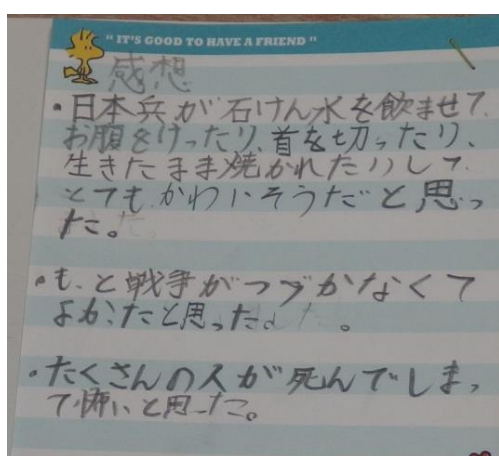 "IT'S GOOD TO HAVE A FRIEND"
感想
・日本兵が石けん水を飲ませて
お腹をけったり、首を切ったり、
生きたまま焼かれたりして
とてもかわいそうだと思っ
た。
・もっと戦争がつづかなくて
よかったと思った。
・たくさんの人が死んでしまっ
て怖いと思った。